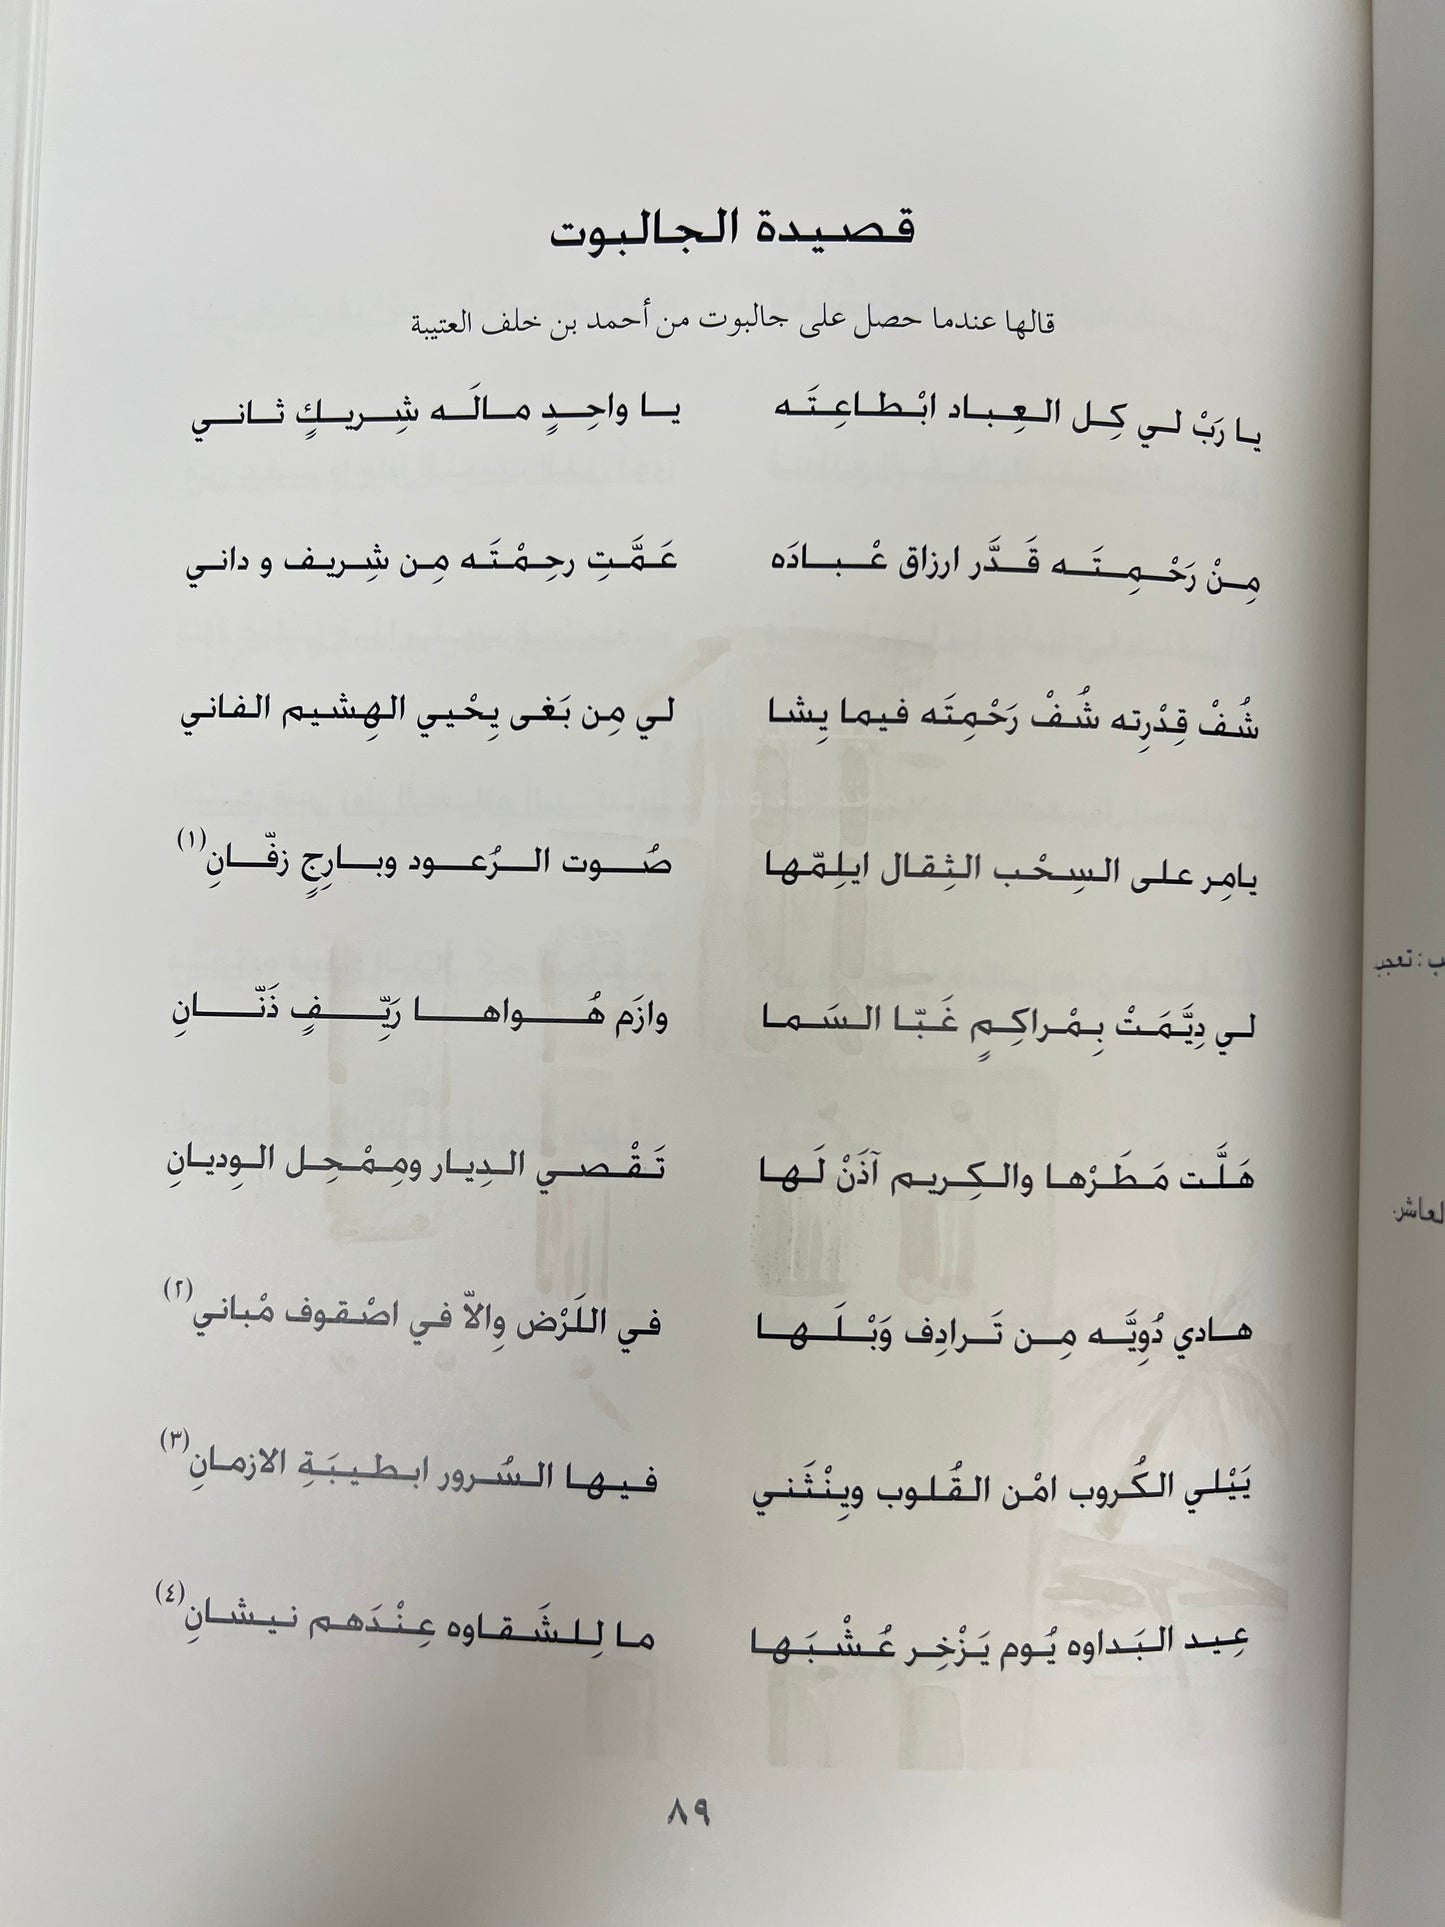 قصيدة الجالبوت
قالها عندما حصل على جالبوت من أحمد بن خلف العتيبة
يا رَبْ لي كِل العِباد ابْطاعِتَه يا واحِدٍ مالَه شِريكٍ ثاني
مِنْ رَحْمِتَه قَدَّر ارزاق عْبادَه عَمَّتِ رحِمْتَه مِن شِريف و داني
شُفْ قِدْرِته شُفْ رَحْمِتَه فيما يِشا لي مِن بَغى يِحْيي الهِشيم الفاني
يامِر على السِحْب الثِقال ايلِمّها صُوت الرُعود وبارِجٍ زفّانِ(١)
لي دِيَّمَتْ بِمْراكِمٍ غَبّا السَما وازَم هُواها رَيِّفٍ ذَنّانِ
هَلَّت مَطَرْها والكِريم آذَنْ لَها تَقْصي الدِيار ومِمْحِل الوِديانِ
هادي دُوِيَّه مِن تَرادِف وَبْلَها في اللَرْض وِالاّ في اصْقوف مْباني(٢)
يَيْلي الكُروب امْن القُلوب ويِنْثَني فيها السُرور ابطيبَةِ الازمانِ(٣)
عِيد البَداوه يُوم يَزْخِر عُشْبَها ما لِلشَقاوه عِنْدَهم نيشانِ(٤)
٨٩
ب : تعجب
لعاشر.